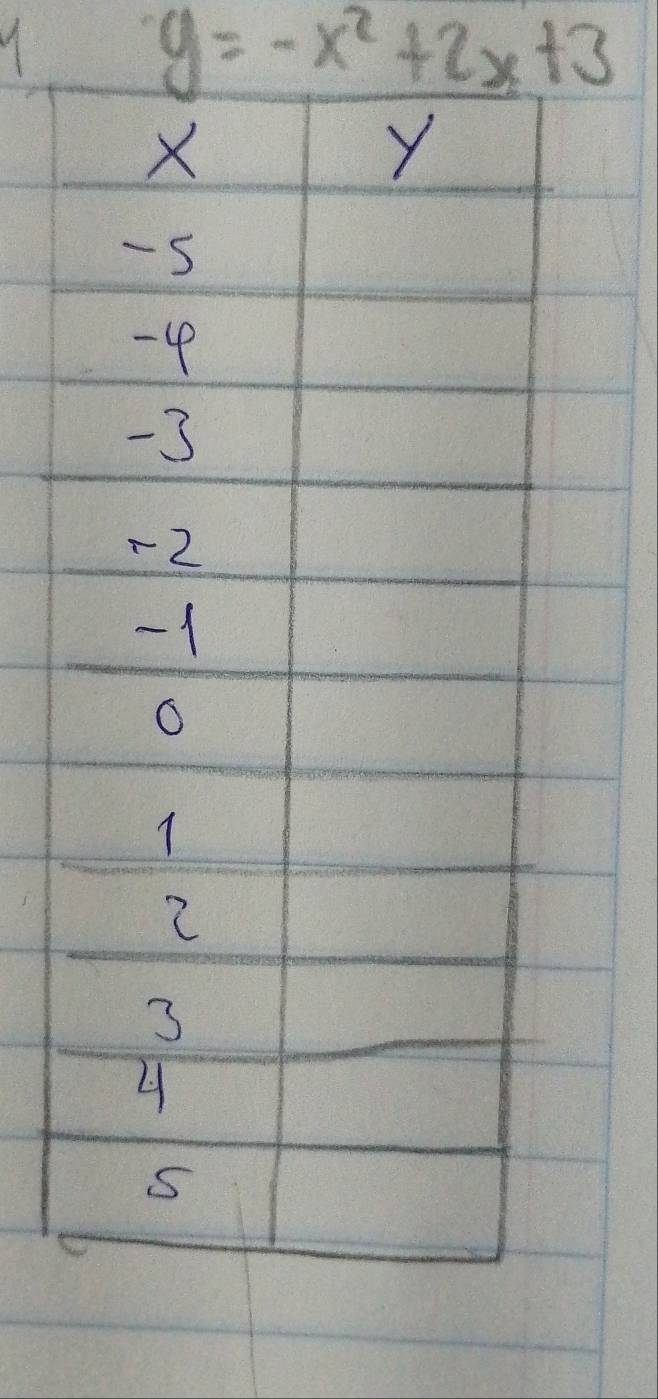 y = -x² + 2x + 3
X Y
-5
-4
-3
-2
-1
0
1
2
3
4
5